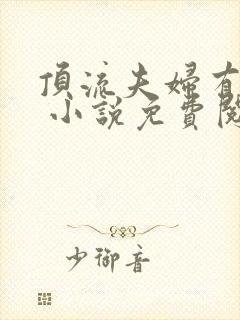 頂流夫婦有
小說免費閱
少御音